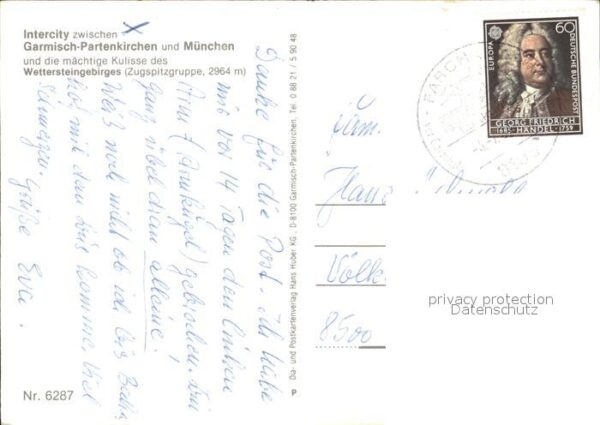 Intercity zwischen
Garmisch-Partenkirchen und München
und die mächtige Kulisse des
Wettersteingebirges (Zugspitzgruppe, 2964 m)
X
Danke für die Post. Ich habe
mir vor 14 Tagen den linken
Arm (Armkugel) gebrochen. Bin
ganz übel dran alleine.
Weiß noch nicht ob ich bis
hof mit dem Bus komme. Viel
Schmerzen. Grüße Eva.
Nr. 6287
Dia- und Postkartenverlag Hans Huber KG., D-8100 Garmisch-Partenkirchen, Tel. 0 88 21 / 5 90 48
P
EUROPA
60
DEUTSCHE BUNDESPOST
GEORG FRIEDRICH
1685 HÄNDEL 1759
Fam.
8500
privacy protection
Datenschutz